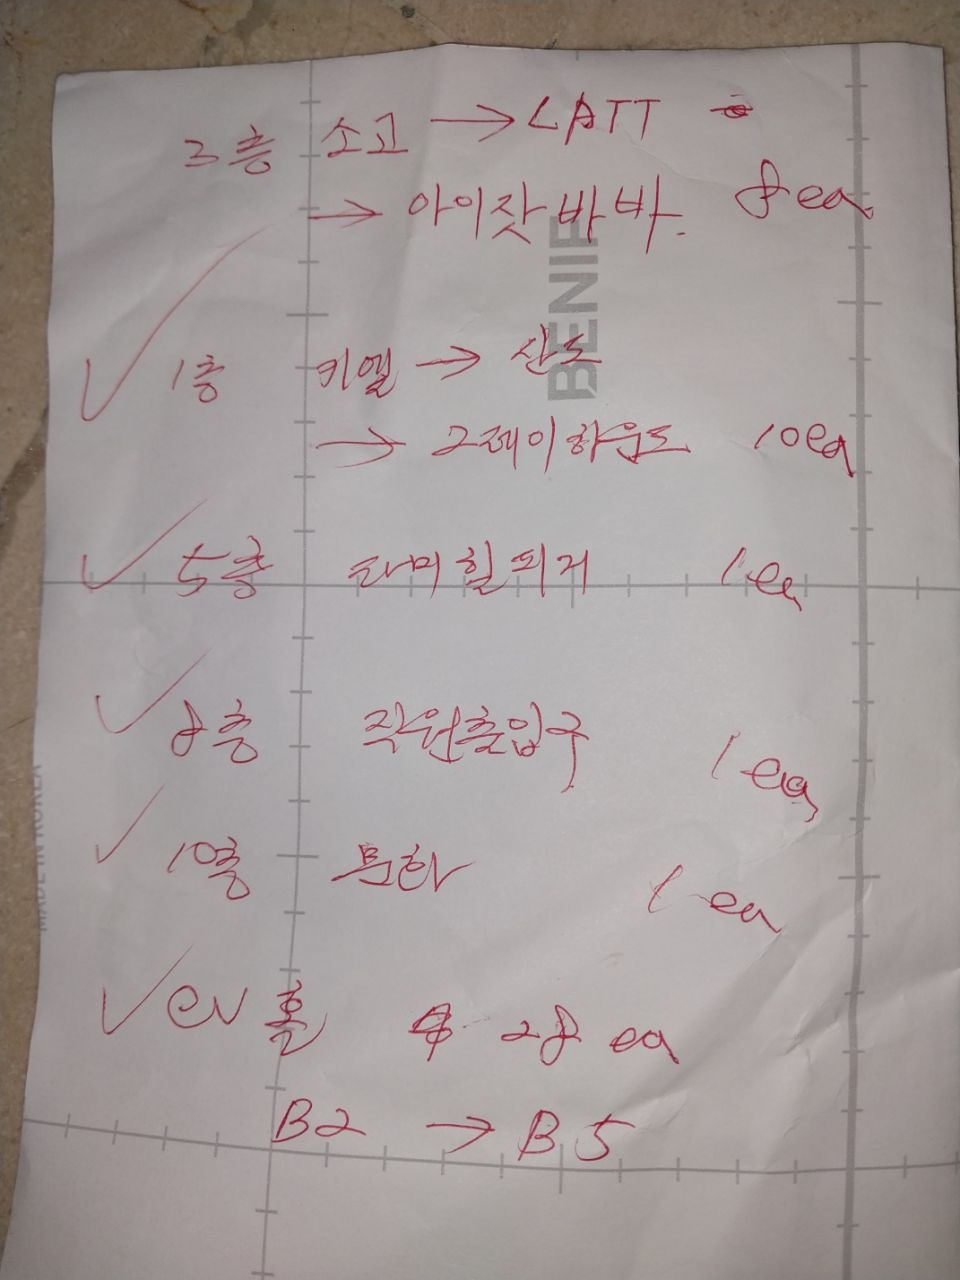 3층 소고 → LATT
→ 아이잣바바. 8ea
1층 키엘 → 산드
→ 그레이하운드 10ea
5층 타미힐피거 1ea
8층 직원출입구 1ea
10층 문화 1ea
EV홀 28ea
B2 → B5
BENIF
MADE IN KOREA